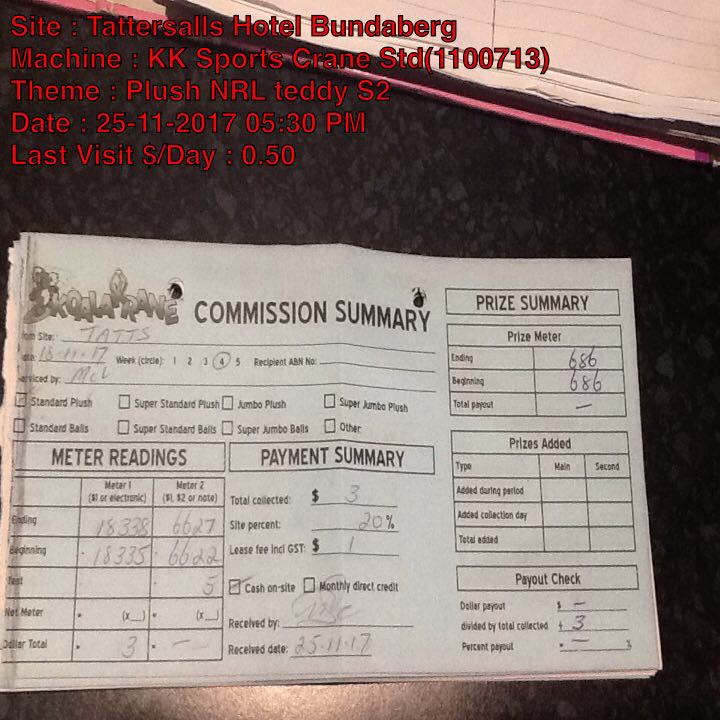 Site : Tattersalls Hotel Bundaberg
Machine : KK Sports Crane Std(1100713)
Theme : Plush NRL teddy S2
Date : 25-11-2017 05:30 PM
Last Visit $/Day : 0.50
KOALA KRANE COMMISSION SUMMARY
Site: TATTS
18-11-17 Week (circle): 1 2 3 4 5 Recipient ABN No:
Serviced by:
Standard Plush Super Standard Plush Jumbo Plush Super Jumbo Plush
Standard Balls Super Standard Balls Super Jumbo Balls Other
METER READINGS
Meter 1 Meter 2
($1 or electronic) ($1, $2 or note)
Ending 18338 6627
Beginning 18335 6622
Test 5
Net Meter (x__) (x__)
Dollar Total 3 —
PAYMENT SUMMARY
Total collected: $ 3
Site percent: 20%
Lease fee incl GST: $ 1
Cash on-site Monthly direct credit
Received by:
Received date: 25-11-17
PRIZE SUMMARY
Prize Meter
Ending 686
Beginning 686
Total payout —
Prizes Added
Type Main Second
Added during period
Added collection day
Total added
Payout Check
Dollar payout $ —
divided by total collected ÷ 3
Percent payout = — %